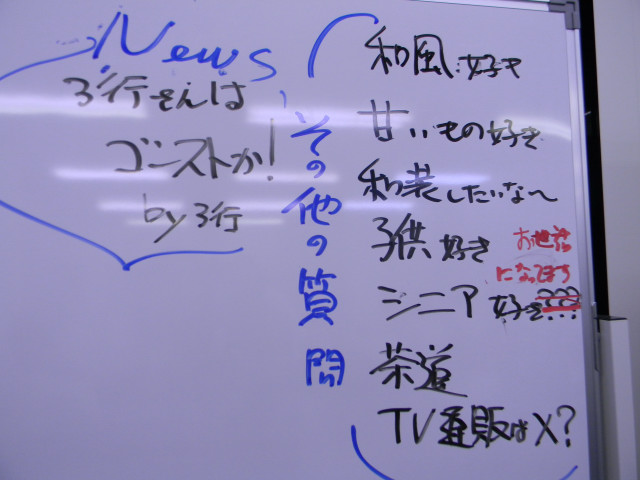 News
3行さんは
ゴーストか!
by 3行
その他の質問
和風好き
甘いもの好き
和装したいな〜
子供好き
お世話
になってます
シニア好き???
茶道
TV通販はX?